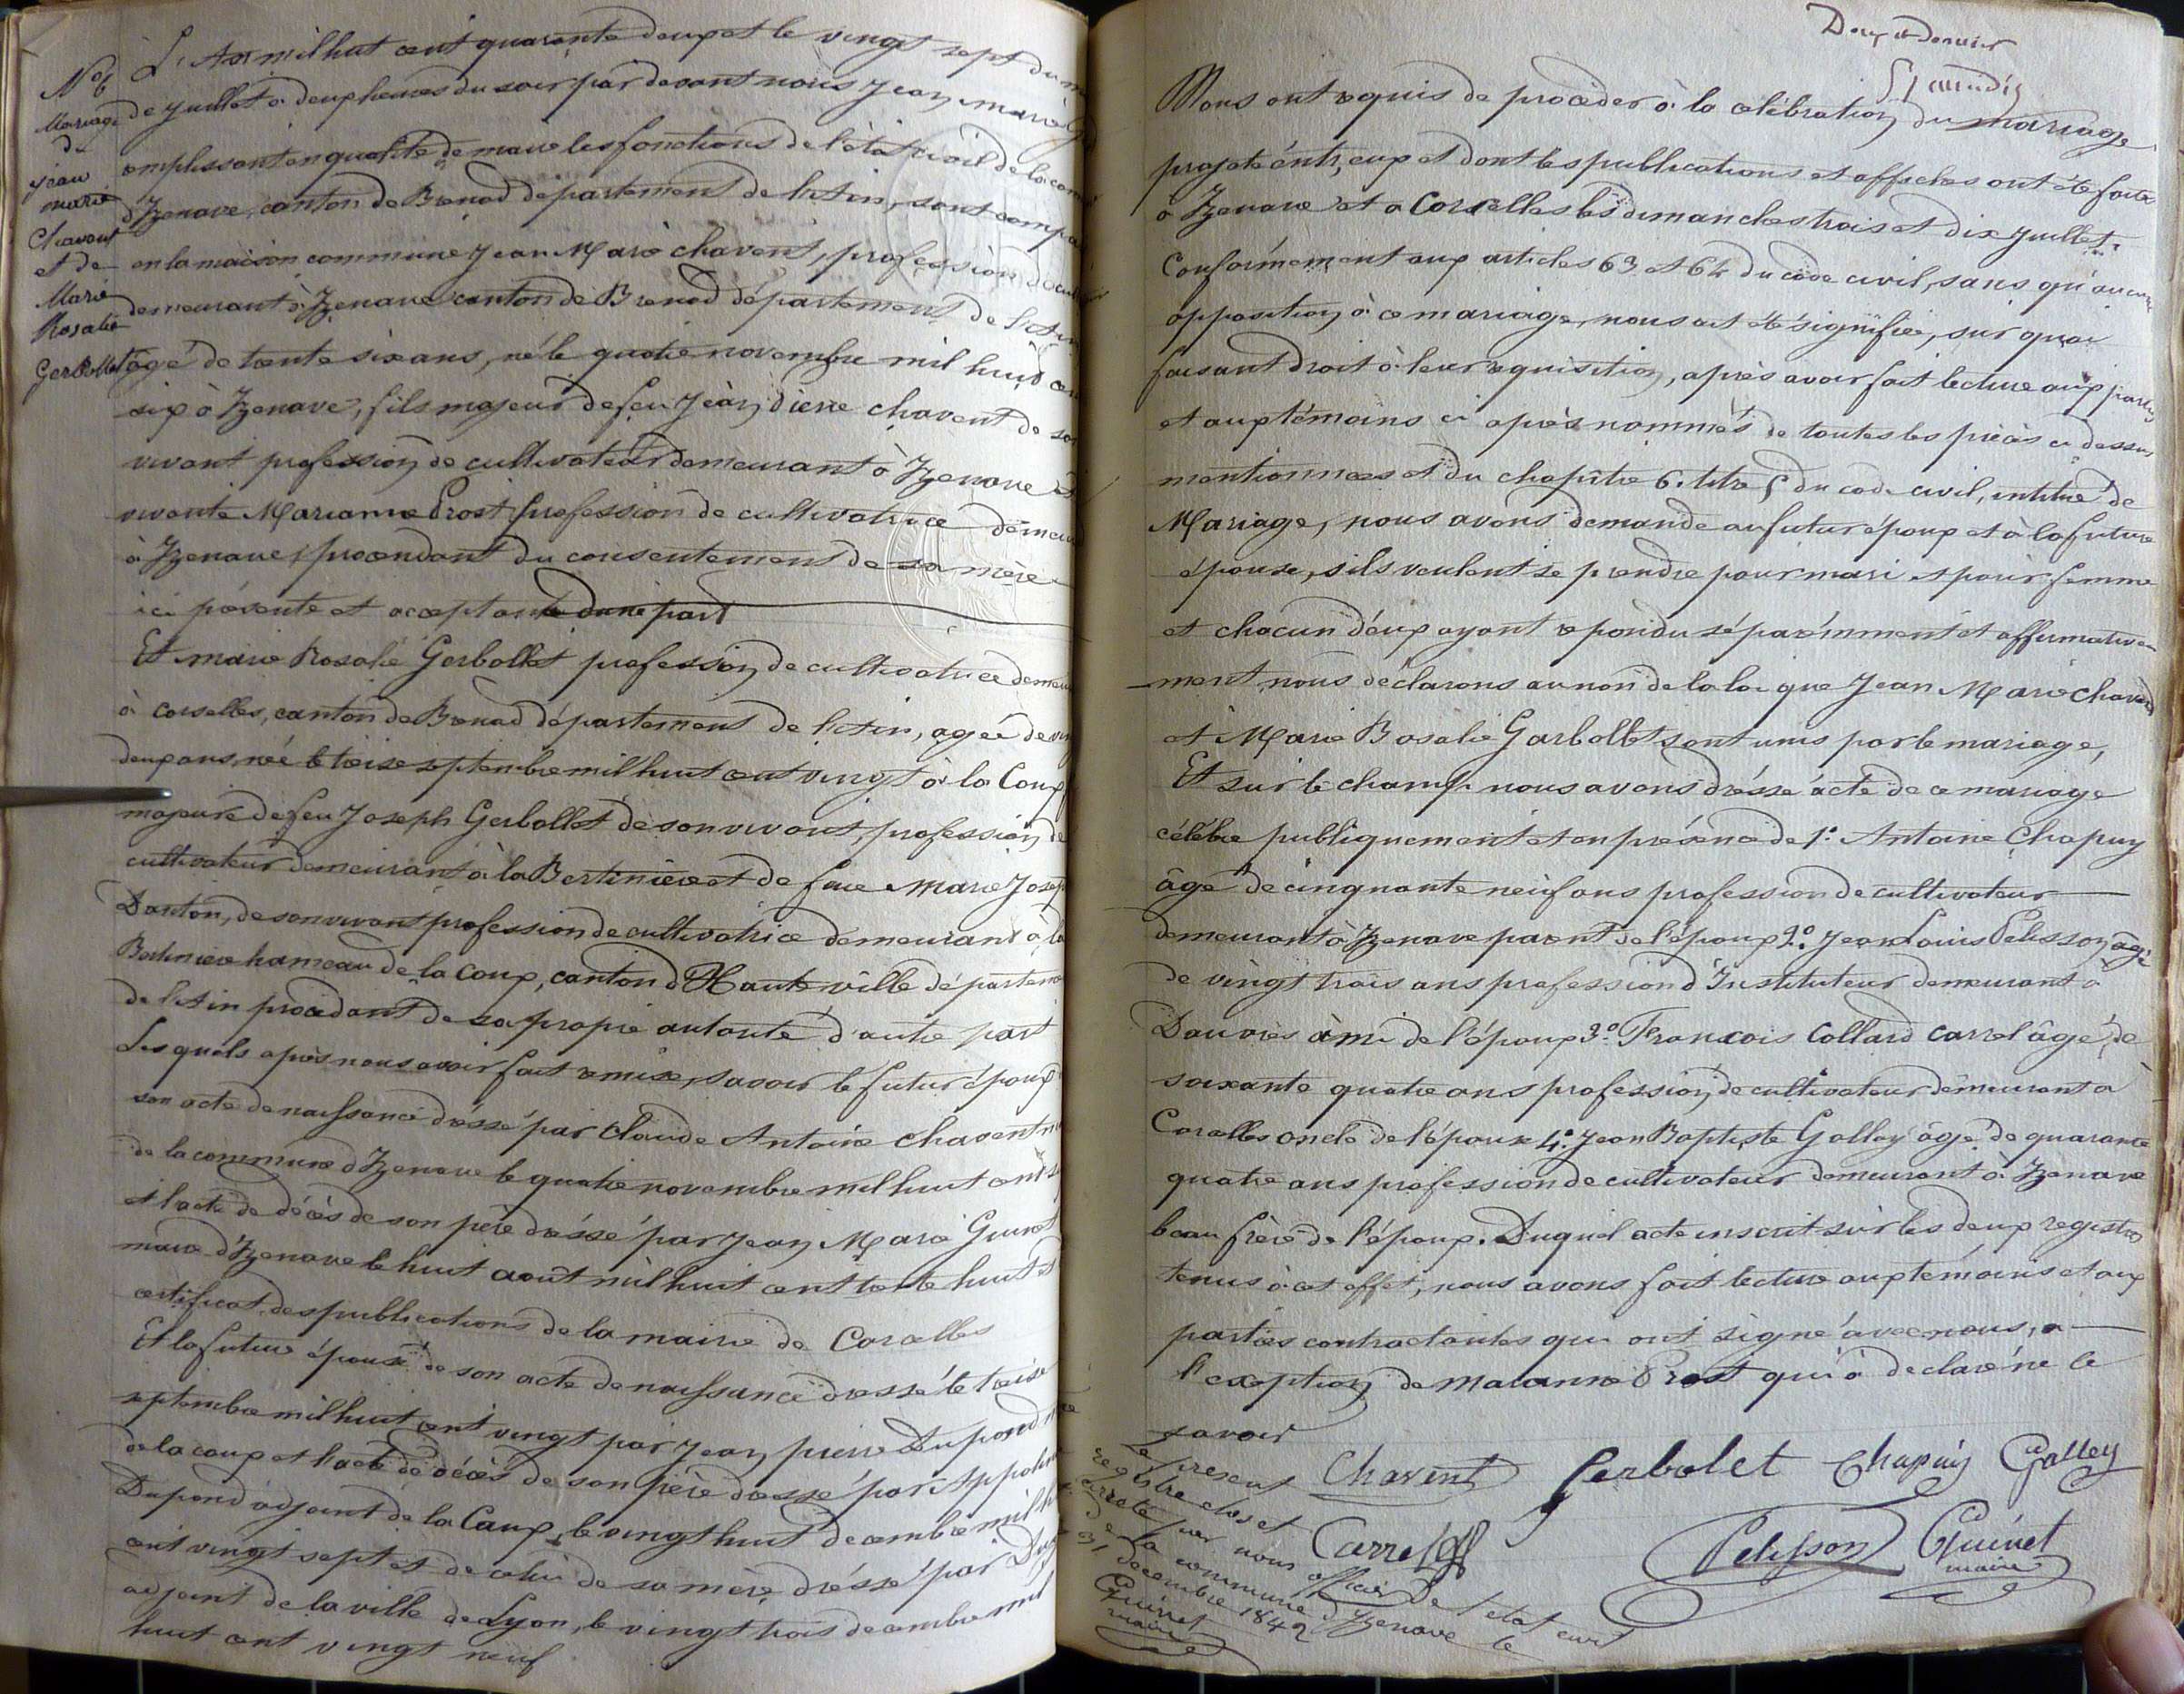 N° 6
Mariage
de
jean
marie
Chavent
et de
Marie
Rosalie
Gerbollet
L'An mil huit cent quarante deux et le vingt sept du
de juillet à deux heures du soir par devant nous Jean Marie
remplissant en qualité de maire les fonctions de l'état civil de la com
d'Izenave, canton de Brenod département de l'Ain, sont compa
en la maison commune Jean Marie Chavent, profession de cul
demeurant à Izenave canton de Brenod département de l'Ain
âgé de trente six ans, né le quatre novembre mil huit cen
six à Izenave, fils majeur de feu Jean pierre chavent de so
vivant profession de cultivateur demeurant à Izenave et
vivante Marianne Prost profession de cultivatrice demeu
à Izenave procendant du consentement de sa mère
ici présente et acceptante d'une part
Et marie Rosalie Gerbollet profession de cultivatrice demeu
à corselles, canton de Brenod département de l'Ain, agée de vin
deux ans, née le treise septembre mil huit cent vingt à la Coux
majeure de feu Joseph Gerbollet de son vivant, profession de
cultivateur demeurant à la Bertinière et de feue Marie Josep
Danton, de son vivant profession de cultivatrice demeurant à la
Bertiniere hameau de la Coux, canton d'Hauteville départeme
de l'Ain procédant de sa propre autorité d'autre part
Les quels après nous avoir fait remise, savoir le futur époux
son acte de naissance dréssé par Claude Antoine Chavent m
de la commune d'Izenave le quatre novembre mil huit cent s
et l'acte de décès de son père dréssé par Jean Marie Guinet
maire d'Izenave le huit août mil huit cent trente huit et
certificat des publications de la mairie de Corcelles
Et la future épouse de son acte de naissance dressé le treise
septembre mil huit cent vingt par Jean pierre Dupond m
de la coux et l'acte de décès de son père dressé par Appolin
Dupond adjoint de la Coux, le vingt huit décembre mil h
cent vingt sept et de celui de sa mère, dréssé par
adjoint de la ville de Lyon, le vingt trois decembre mil
huit cent vingt neuf
Deux et dernier
Nous ont requis de procéder à la célébration du mariage
projeté entr,eux et dont les publications et affiches ont été faites
à Izenave et a Corcelles les dimanches trois et dix juillet.
Conformement aux articles 63 et 64 du code civil, sans qu'aucune
opposition à ce mariage, nous ait été signifiée, sur quoi
faisant droit à leur requisition, après avoir fait lecture aux parties
et aux témoins ci après nommés de toutes les pièces ci dessus
mentionnées et du chapître 6. titre 5 du code civil, intitué de
Mariage, nous avons demandé au futur époux et à la future
épouse, s'ils veulent se prendre pour mari et pour femme
et chacun d'eux ayant repondu séparémment et affirmative
-ment, nous déclarons au nom de la loi que Jean Marie Chavend
et Marie Rosalie Garbollet sont unis par le mariage,
Et sur le champ. nous avons drèssé acte de ce mariage
célébré publiquement et en présence de 1.° Antoine Chapuy
âgé de cinquante neuf ans profession de cultivateur
demeurant à Izenave parent de l'époux 2.° Jean Louis Pelisson, âgé
de vingt trois ans profession d'Instituteur demeurant à
Douvres ami de l'époux 3.° François Collard carrel âgé de
soixante quatre ans profession de cultivateur demeurant à
Corcelles oncle de l'épouse 4.° Jean Baptiste Galley âgé de quarante
quatre ans profession de cultivateur demeurant à Izenave
beau frère de l'époux. Duquel acte inscrit sur les deux registres
tenus à cet effet, nous avons fait lecture aux témoins et aux
parties contractantes qui ont signé avec nous, a
l'exception de Marianne Prost qui a declaré ne le
savoir
Chavent Gerbolet Chapuy Galley
Carrel Pelisson Guinet
maire
Le present
registre clos et
arreté par nous officier de l'etat civil
de la commune d'Izenave le
31 decembre 1842
Guinet
maire